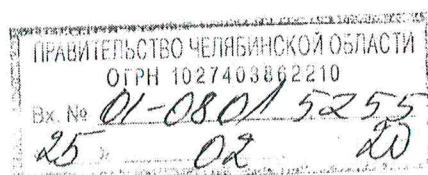 ПРАВИТЕЛЬСТВО ЧЕЛЯБИНСКОЙ ОБЛАСТИ
ОГРН 1027403862210
Вх. № 01-0801 5255
25 » 02 20